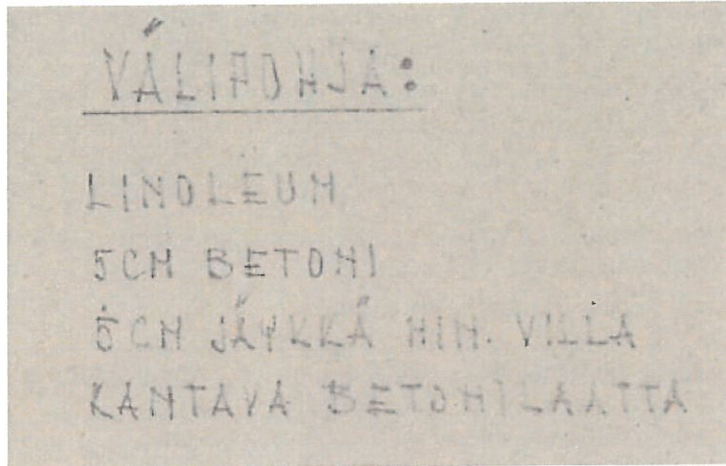 VÄLIPOHJA:
LINOLEUM
5CM BETONI
5CM JÄYKKÄ MIN. VILLA
KANTAVA BETONILAATTA